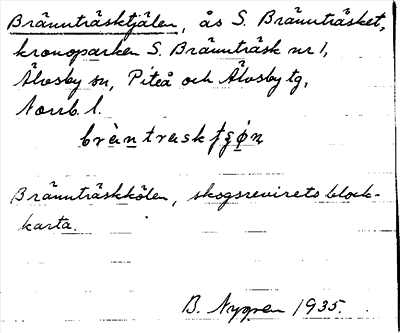 Brännträsktjälen, ås S. Brännträsket,
kronoparken S. Brännträsk nr 1,
Älvsby sn, Piteå och Älvsby tg,
Norrb. l.
Brännträskkölen, skogsrevirets block-
karta.
B. Nygren 1935.